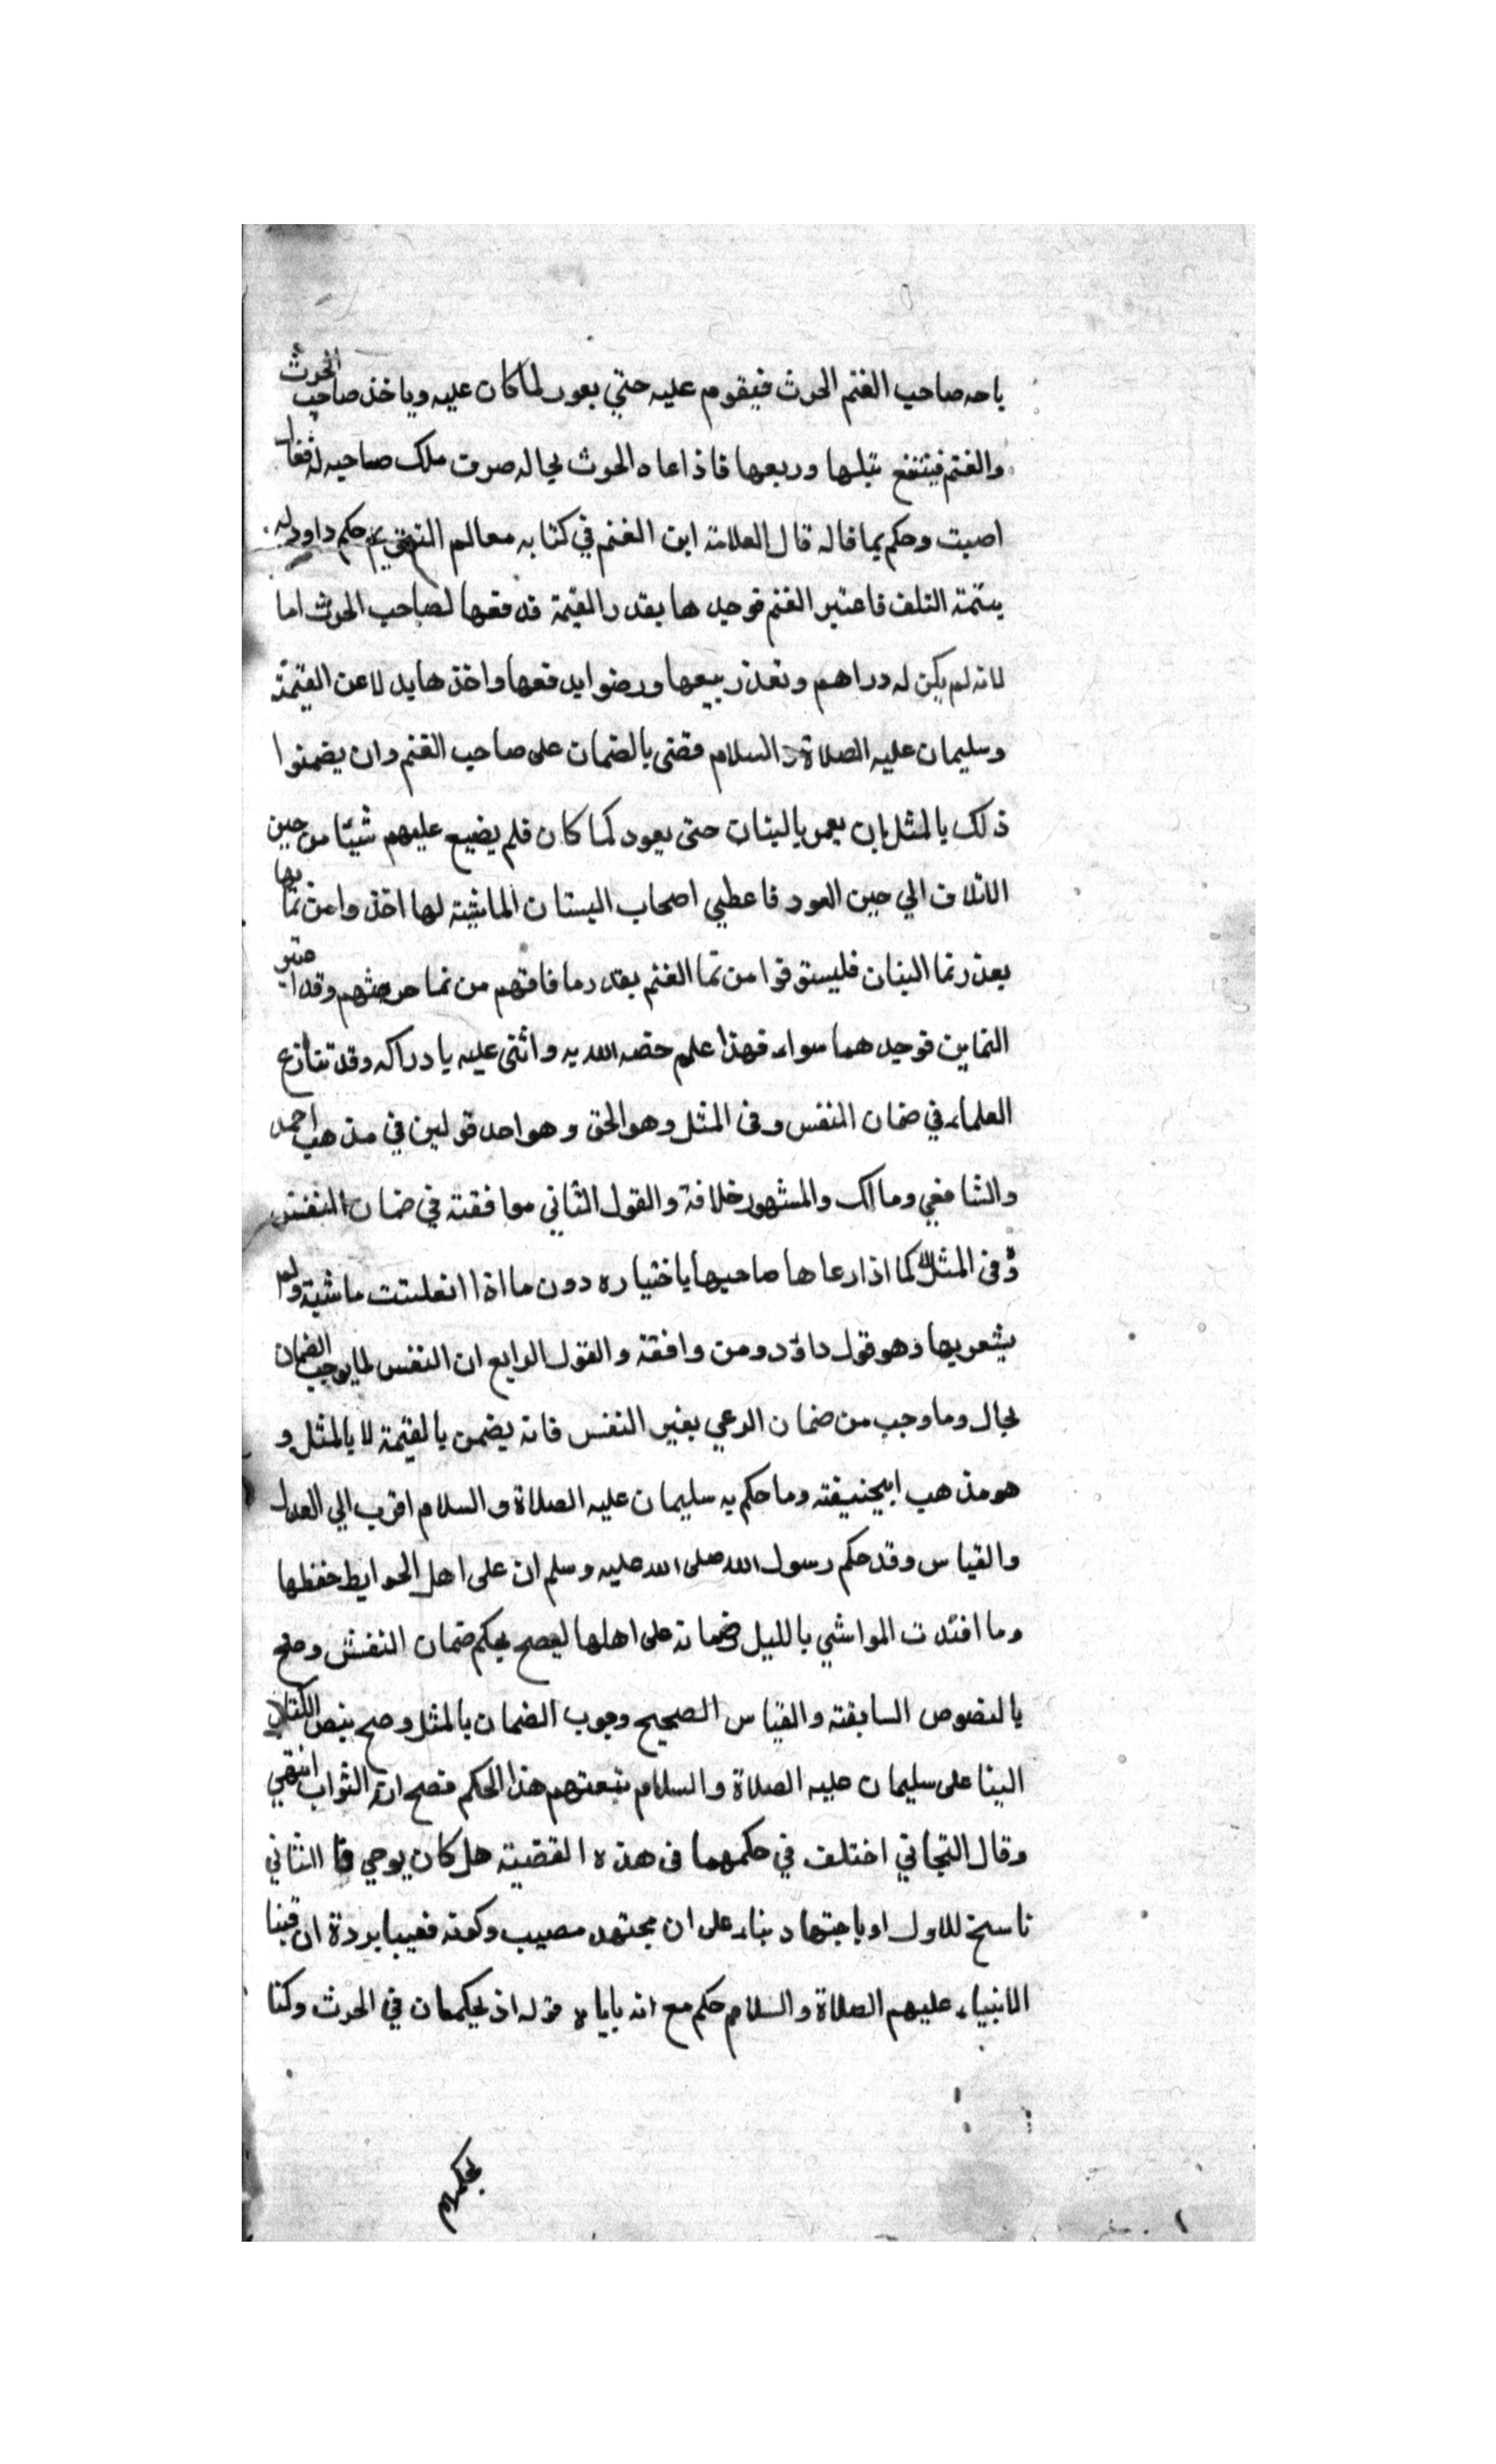 ياحد صاحب الغنم الحرث فيقوم عليه حتي يعود لما كان عليه وياخذ صاحب الحرث
والغنم فينتفع بنبلها وربعها فاذا عاه الحرث لحاله صرت ملك صاحبه له فقال
اصبت وحكم بما قاله قال العلامة ابن الغنم في كتابه معالم التنقيح حكم داود له
بيتمة التلف فاعتبر الغنم فوجدها بقدر القيمة فدفعها لصاحب الحرث اما
لانه لم يكن له دراهم وتعذر بيعها ورضوا بدفعها واخذها بدلا عن القيمة
وسليمان عليه الصلاة والسلام فقضى بالضمان على صاحب الغنم وان يضمنوا
ذلك بالمثل بان يعمر بالبنيان حتى يعود كما كان فلم يضيع عليهم شيئا من حين
الاتلاف الي حين العود فاعطي اصحاب البستان الماشية لها اخذوا من نمايها
بعذر نما البنان فليستوفوا من نما الغنم بقدر ما فاتهم من نما حرثهم وقد اعتبر
النماين فوجدهما سواء فهذا علم خصه الله به واثنى عليه بادراكه وقد تنازع
العلماء في ضمان النفس وفي المثل وهو الحق وهو احد قولين في مذهب احمد
والشافعي ومالك والمشهور خلافة والقول الثاني موافقته في ضمان النفش
وفى المثل كما اذا رعاها صاحبها باختياره دون ما اذا انفلتت ماشية ولم
يشعر بها وهو قول داؤد ومن وافقة والقول الرابع ان النفس لما يوجب الضمان
بحال وما وجب من ضمان الرعي بغير النفس فانه يضمن بالقيمة لا بالمثل و
هو مذهب ابيحنيفته وما حكم به سليمان عليه الصلاة والسلام اقرب الي العدل
والقياس وقد حكم رسول الله صلى الله عليه وسلم ان على اهل الحوايط حفظها
وما افتدت المواشي بالليل ضمانه على اهلها ليصح بحكم ضمان النفش وصح
بالنصوص السابقته والقياس الصحيح وجوب الضمان بالمثل وصح بنص الكتاب
البنا على سليمان عليه الصلاة والسلام هذا الحكم فصح انه الثواب انتهي
وقال التجاني اختلف في حكمهما فى هذه القضيته هل كان يوحي فا الثاني
ناسخ للاول او باجتهاد بناء على ان مجتهد مصيب وكونه
الانبياء عليهم الصلاة والسلام حكم مع انه ياباه قوله اذ يحكمان في الحرث وكنا
لحكمهم